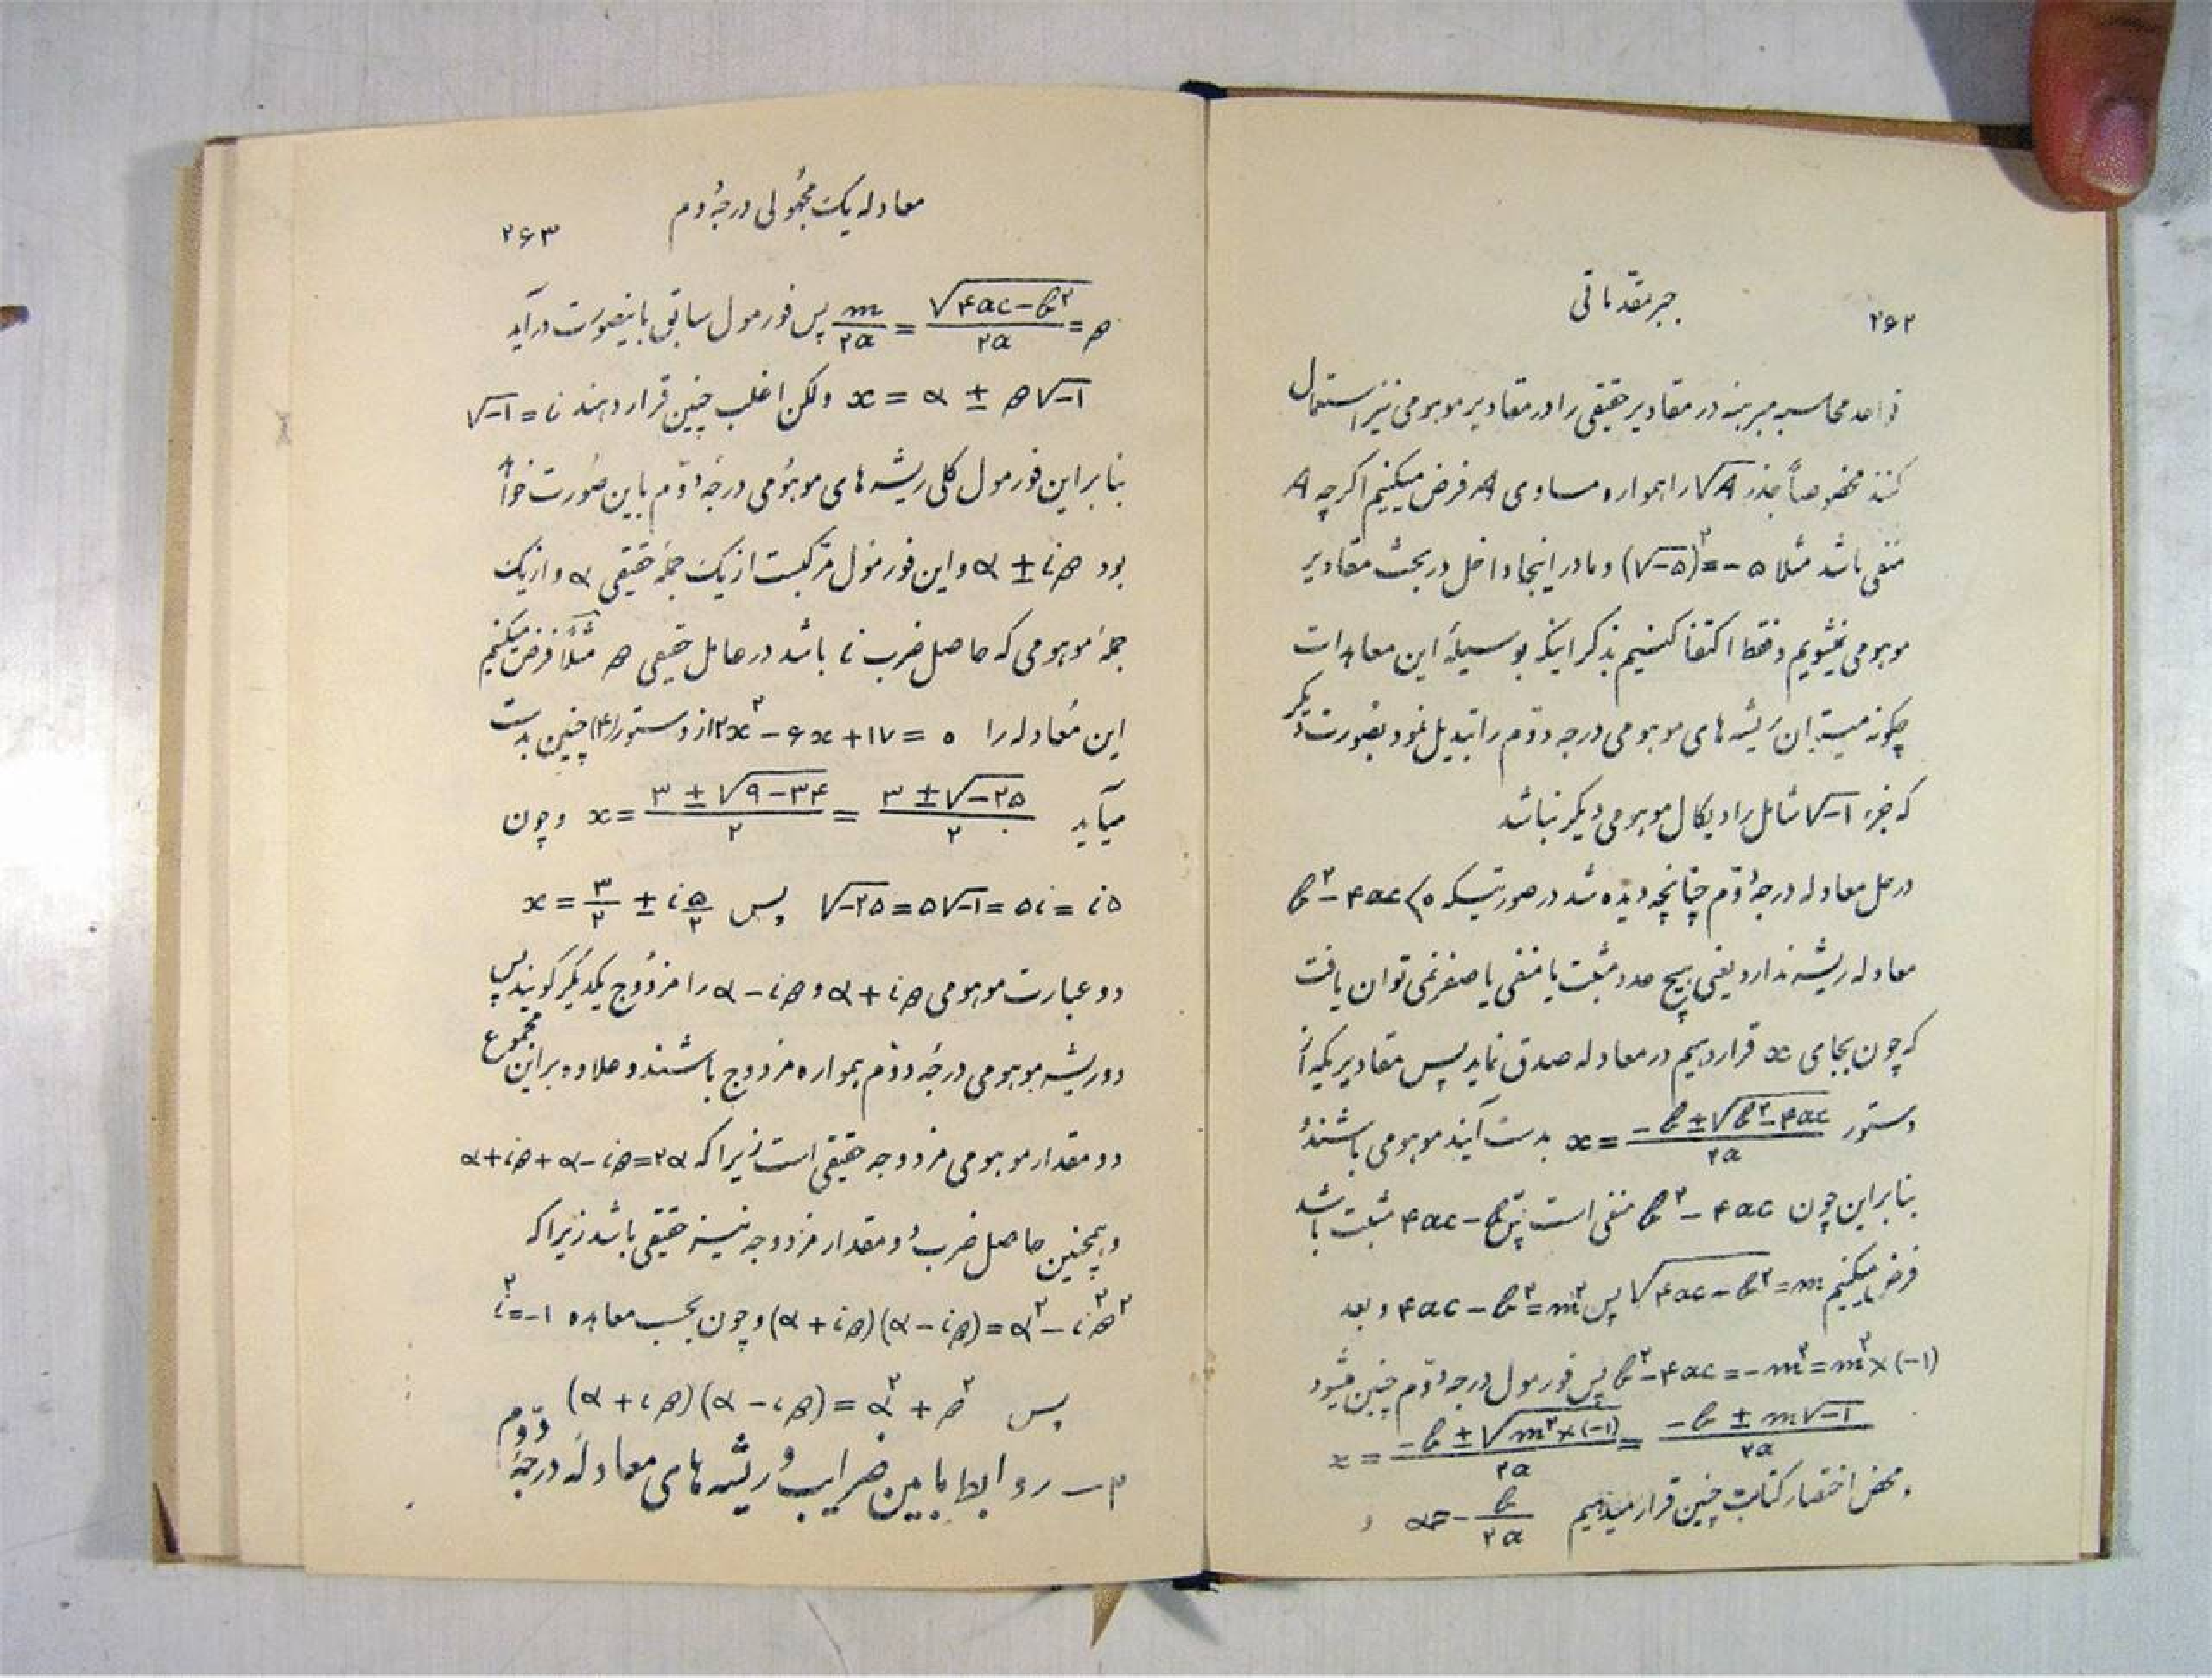 ۲۶۲
جبر مقدماتی
قواعد محاسبه جبریه در مقادیر حقیقی را در مقادیر موهومی نیز استعمال
کنند مخصوصاً مجذور √A را همواره مساوی A فرض میکنیم اگرچه A
منفی باشد مثلا (√−۵)^۲ = −۵ و ما در اینجا داخل در بحث مقادیر
موهومی نمیشویم و فقط اکتفا کنیم بذکر اینکه بوسیلهٔ این معاهدات
چگونه میتوان ریشه های موهومی درجه دوّم را تبدیل نمود بصورت دیگر
که جزء √−۱ شامل رادیکال موهومی دیگر نباشد
در حل معادله درجهٔ دوّم چنانچه دیده شد در صورتیکه b^۲ − ۴ac < ۰
معادله ریشه ندارد یعنی هیچ عدد مثبت یا منفی یا صفر نمی توان یافت
که چون بجای x قرار دهیم در معادله صدق نماید پس مقادیریکه از
دستور x = (−b ± √(b^۲ − ۴ac))/۲a بدست آیند موهومی باشند
بنابراین چون b^۲ − ۴ac منفی است پس ۴ac − b^۲ مثبت باشد
فرض میکنیم √(۴ac − b^۲) = m پس ۴ac − b^۲ = m^۲ و بعد
b^۲ − ۴ac = −m^۲ = m^۲ × (−۱) پس فورمول درجه دوّم چنین میشود
x = (−b ± √(m^۲ × (−۱)))/۲a = (−b ± m√−۱)/۲a
و محض اختصار کتابت چنین قرار میدهیم α = −b/۲a و
معادله یک مجهولی درجهٔ دوم
۲۶۳
β = √(۴ac − b^۲)/۲a = m/۲a پس فورمول سابق باینصورت در آید
x = α ± β√−۱ ولکن اغلب چنین قرار دهند √−۱ = i
بنابراین فورمول کلی ریشه های موهومی درجهٔ دوّم باین صورت خواهد
بود α ± iβ و این فورمول مرکبست از یک جملهٔ حقیقی α و از یک
جملهٔ موهومی که حاصل ضرب i باشد در عامل حقیقی β مثلاً فرض میکنیم
این معادله را ۲x^۲ − ۶x + ۱۷ = ۰ از دستور (۴) چنین بدست
میآید x = (۳ ± √(۹−۳۴))/۲ = (۳ ± √−۲۵)/۲ و چون
√−۲۵ = ۵√−۱ = ۵i = i۵ پس x = ۳/۲ ± i ۵/۲
دو عبارت موهومی α + iβ و α − iβ را مزدوج یکدیگر گویند پس
دو ریشه موهومی درجهٔ دوّم همواره مزدوج باشند و علاوه بر این مجموع
دو مقدار موهومی مزدوجه حقیقی است زیرا که α + iβ + α − iβ = ۲α
و همچنین حاصل ضرب دو مقدار مزدوجه نیز حقیقی باشد زیرا که
(α + iβ)(α − iβ) = α^۲ − i^۲β^۲ و چون بحسب معاهده i^۲ = −۱
پس (α + iβ)(α − iβ) = α^۲ + β^۲
۳ــ روابط مابین ضرایب و ریشه های معادلهٔ درجهٔ دوّم